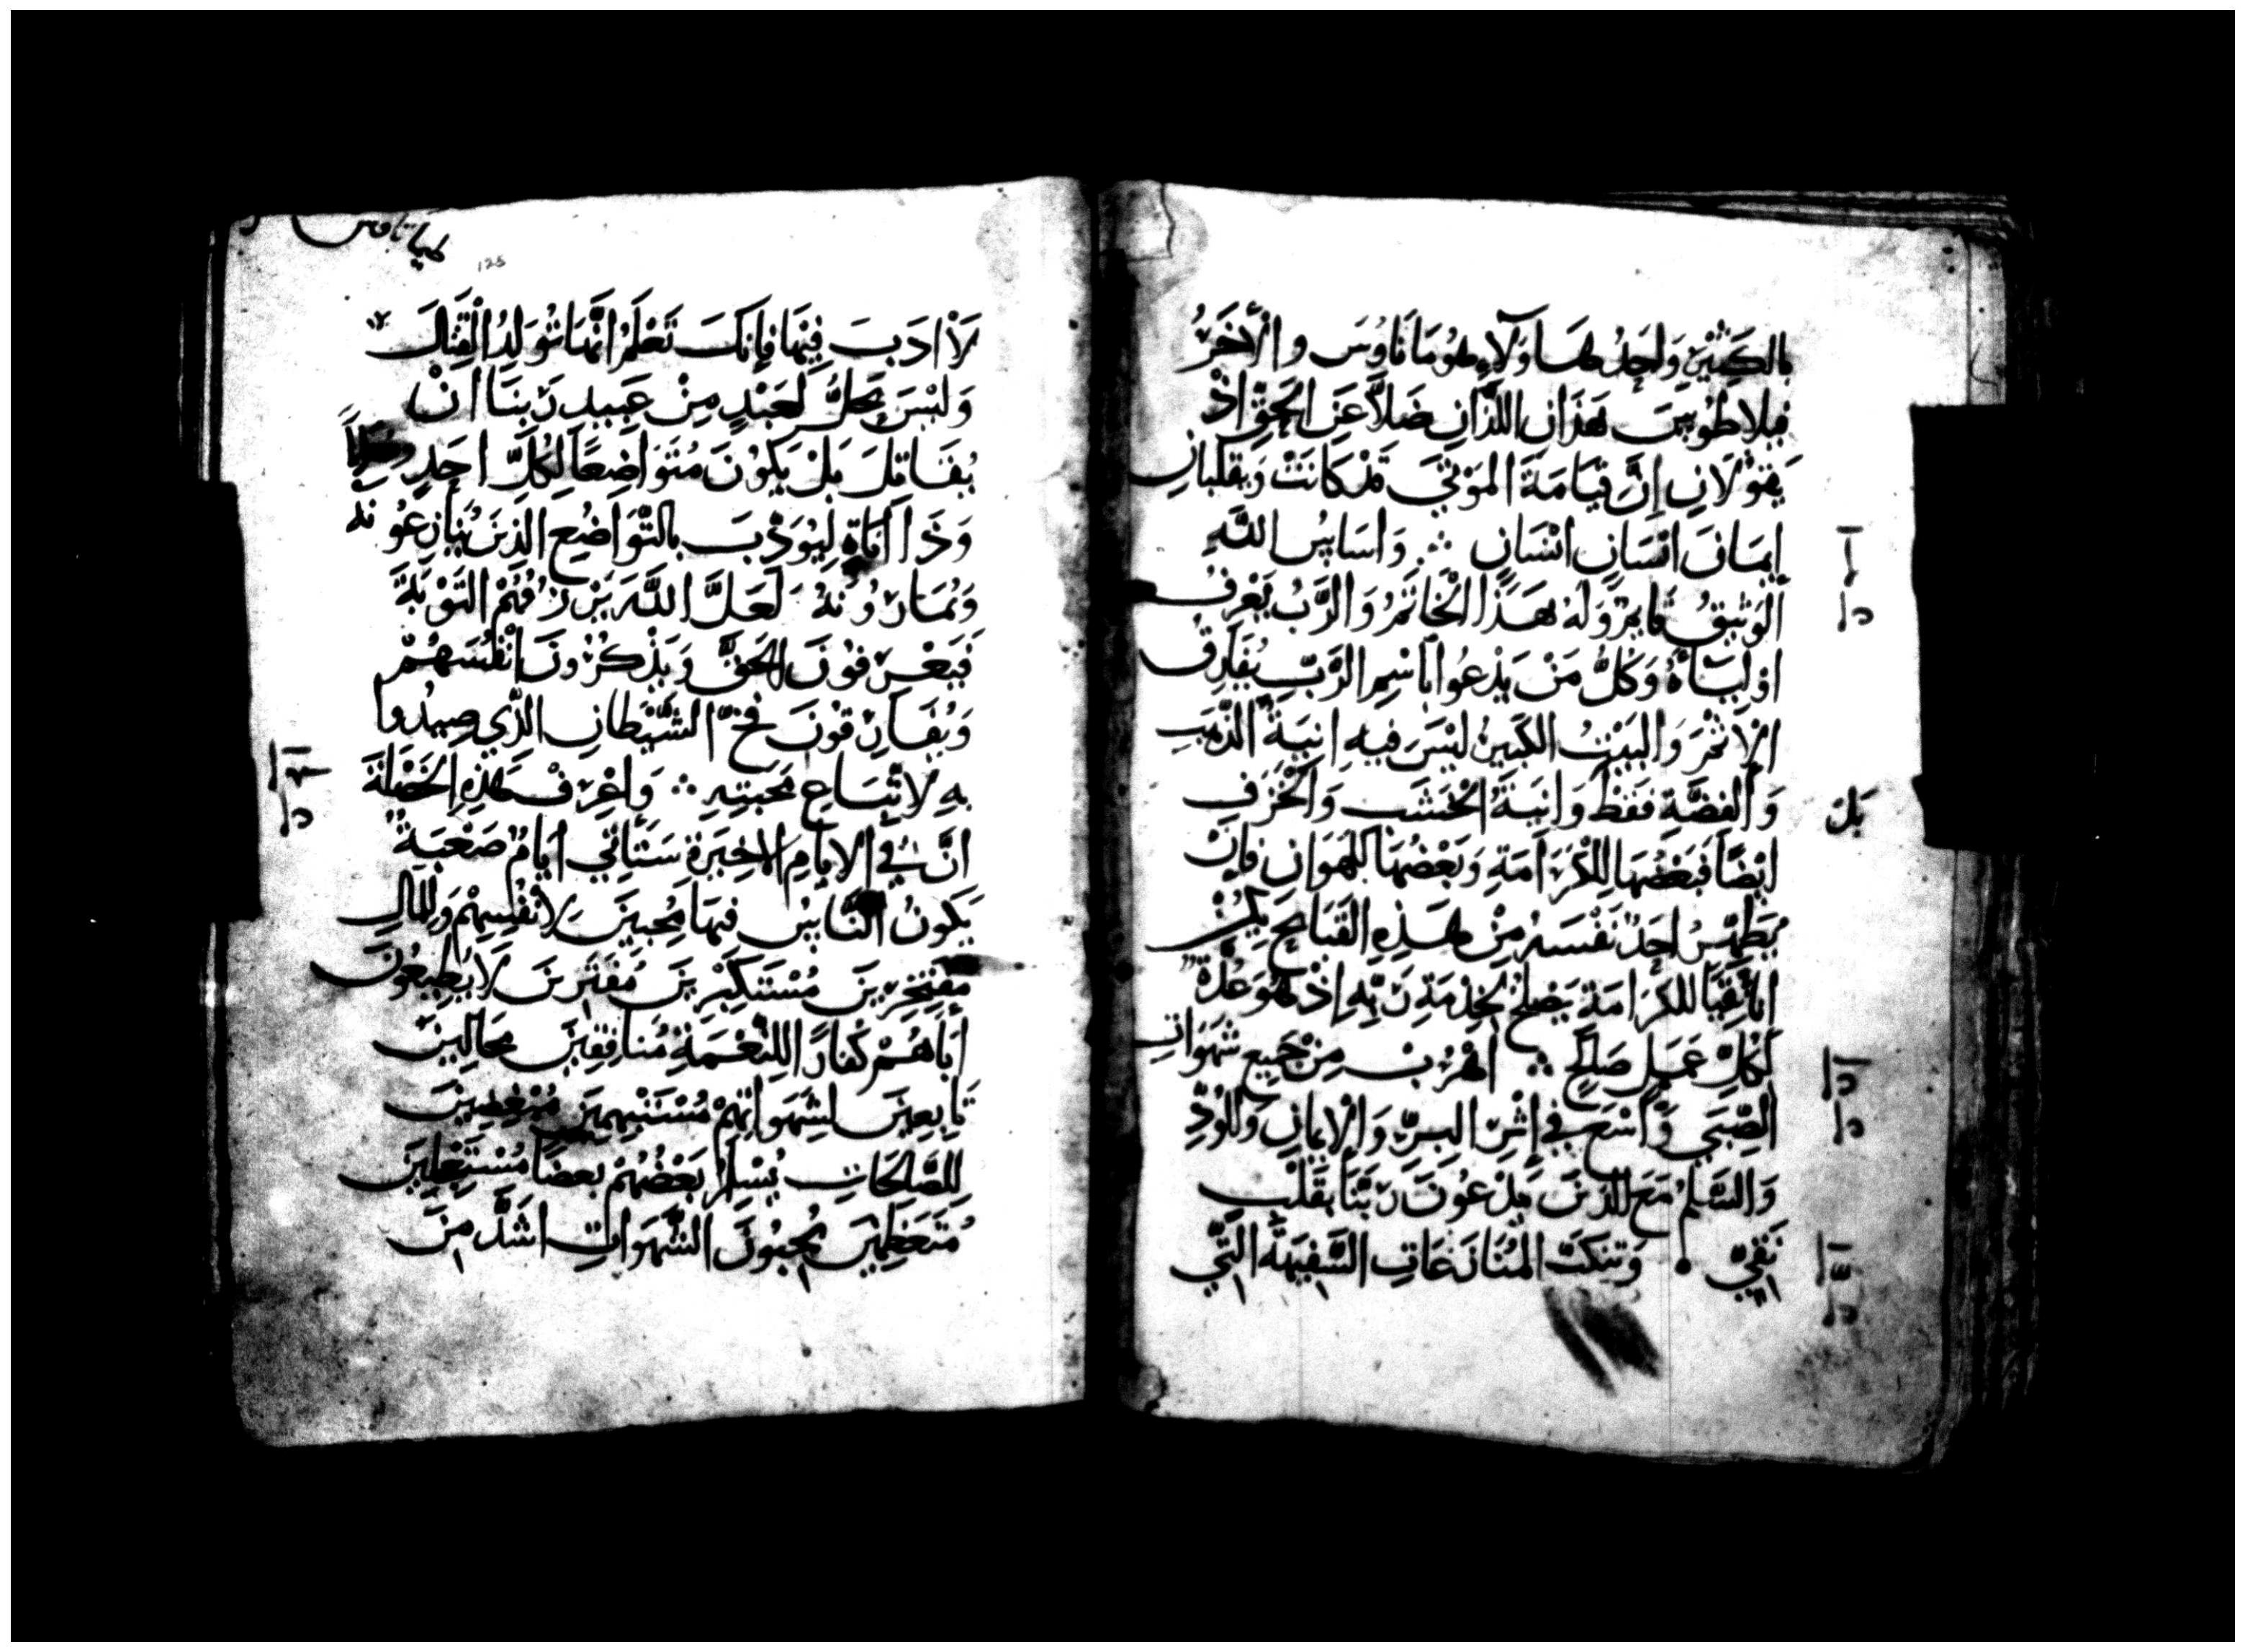 بِالكَثِيْرِ وَاحِدُ هَاوُلَآءِ هُومَانَاوُسَ والآخَرُ
فِيلاطُوسَ هَذَانِ اللَّذَانِ ضَلَّا عَنِ الحَقِّ اذْ
يَقُوْلَانِ اِنَّ قِيَامَةَ المَوْتَي قَدْ كَانَتْ وَيقلبانِ
اِيمَانَ انسَانٍ انسَانٍ ۞ وَاسَاسُ اللَّهِ
الوَثِيقُ قايمٌ وَلَهُ هَذَا الْخَاتَمُ وَالرَّبُ يَعْرِفُ
اوْلِيَاهُ وَكُلُّ مَنْ يَدْعُوا بَاسْمِ الرَّبِّ يُفَارِقُ
الاِثْمَ وَالبَيْتُ الكَبِيرُ لَيْسَ فِيهِ انِيَةُ الذَّهَبِ
وَالْفِضَّةِ فَقَطْ وَانِيَةُ الْخَشَبِ وَالْخَزَفِ
ايْضًا فَبَعْضُهَا لِلْكَرَامَةِ وَبَعْضُهَا لِلهَوَانِ فَاِنْ
يُطَهِّرُ احَدٌ نَفْسَهُ مِنْ هَذِهِ القَبَايِحِ يَكُنْ
انَآءً نَقِيًّا للكَرَامَةِ يَصْلُحُ لِخِدْمَةِ رَبِّهِ اِذْ هُوَ عُدَّةٌ
لِكُلِّ عَمَلٍ صَالِحٍ ۞ اهْرُبْ مِنْ جَمِيعِ شَهَوَاتِ
الصِّبَي وَاسْعَ فِي اِثْرِ البِرِّ وَالاِيمَانِ وَالوُدِّ
وَالسَّلمِ مَعَ الَّذِينَ يَدْعُونَ رَبَّنَا بِقَلْبٍ
نَقِيٍّ • وَتنكَبَّ المُنَازَعَاتِ السَّفِيهَةَ الَّتِي
بَل
هيماناوس
125
لَا ادَبَ فِيهَا فَاِنَّكَ تَعْلَمُ انَّهَا تُوَلِدُ القِتَالَ
وَلَيْسَ يَحِلُّ لِعَبْدٍ مِنْ عَبِيدِ رَبِّنَا انْ
يُقَاتِلَ بَلْ يَكُونَ مُتَوَاضِعًا لِكُلِّ احَدٍ
وَذَا انَاةٍ لِيُوَدِّبَ بِالتَّوَاضُعِ الَّذِينَ يُنَازِعُونَهُ
وَيُمَارُونَهُ لَعَلَّ اللَّهَ يَرْزُقُهُمُ التَّوْبَةَ
فَيَعْرِفُونَ الْحَقَّ وَيَذْكُرُونَ انْفُسَهُمْ
وَيُفَارِقُونَ فَخَّ الشَّيْطَانِ الَّذِي صِيدُوا
بِهِ لاتّبَاعِ مَحَبَّتِهِ ۞ وَاعْرِفْ هَذِهِ الْخَصْلَةَ
انَّ فِي الايَّامِ الاخِيرَةِ سَتَاتِي ايَّامٌ صَعْبَةٌ
يَكُونُ النَّاسُ فِيهَا مُحِبِّينَ لاَنْفُسِهِمْ وَلِلمَالِ
مُفْتَخِرِينَ مُسْتَكْبِرِينَ مُفْتَرِينَ لَا يُطِيعُونَ
ابَاهُمْ كُفَارًا لِلنِّعْمَةِ مُنَافِقِينَ مَحَالِينَ
تَابِعِينَ لِشَهَوَاتِهِمْ مُبْغِضِينَ
لِلصَّالِحَاتِ يُسْلِمُ بَعْضُهُمْ بعضًا مُسْتَعْجِلِينَ
مُتَعَظِمِينَ يُحِبُّونَ الشَّهَوَاتِ اشَدَّ مِنَ